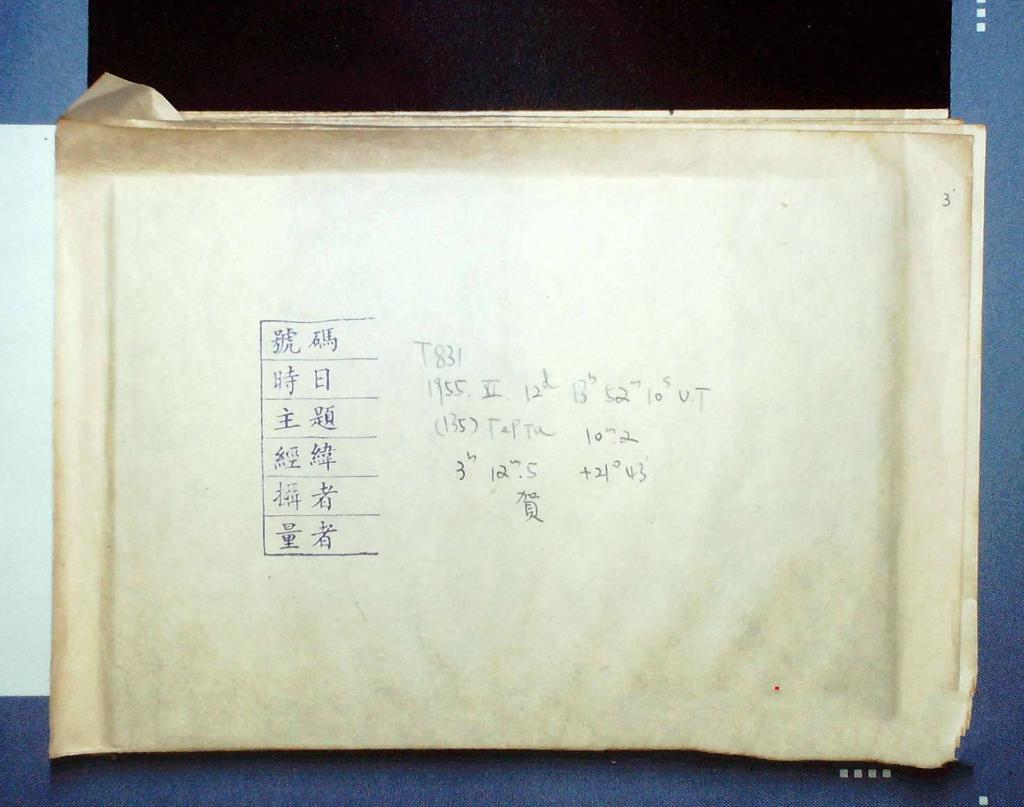 3'
號碼 T831
時日 1955. II. 12ᵈ 13ʰ 52ᵐ 10ˢ U.T
主題 (135) Герта 10ᵐ.2
經緯 3ʰ 12ᵐ.5 +21° 43'
攝者 賀
量者